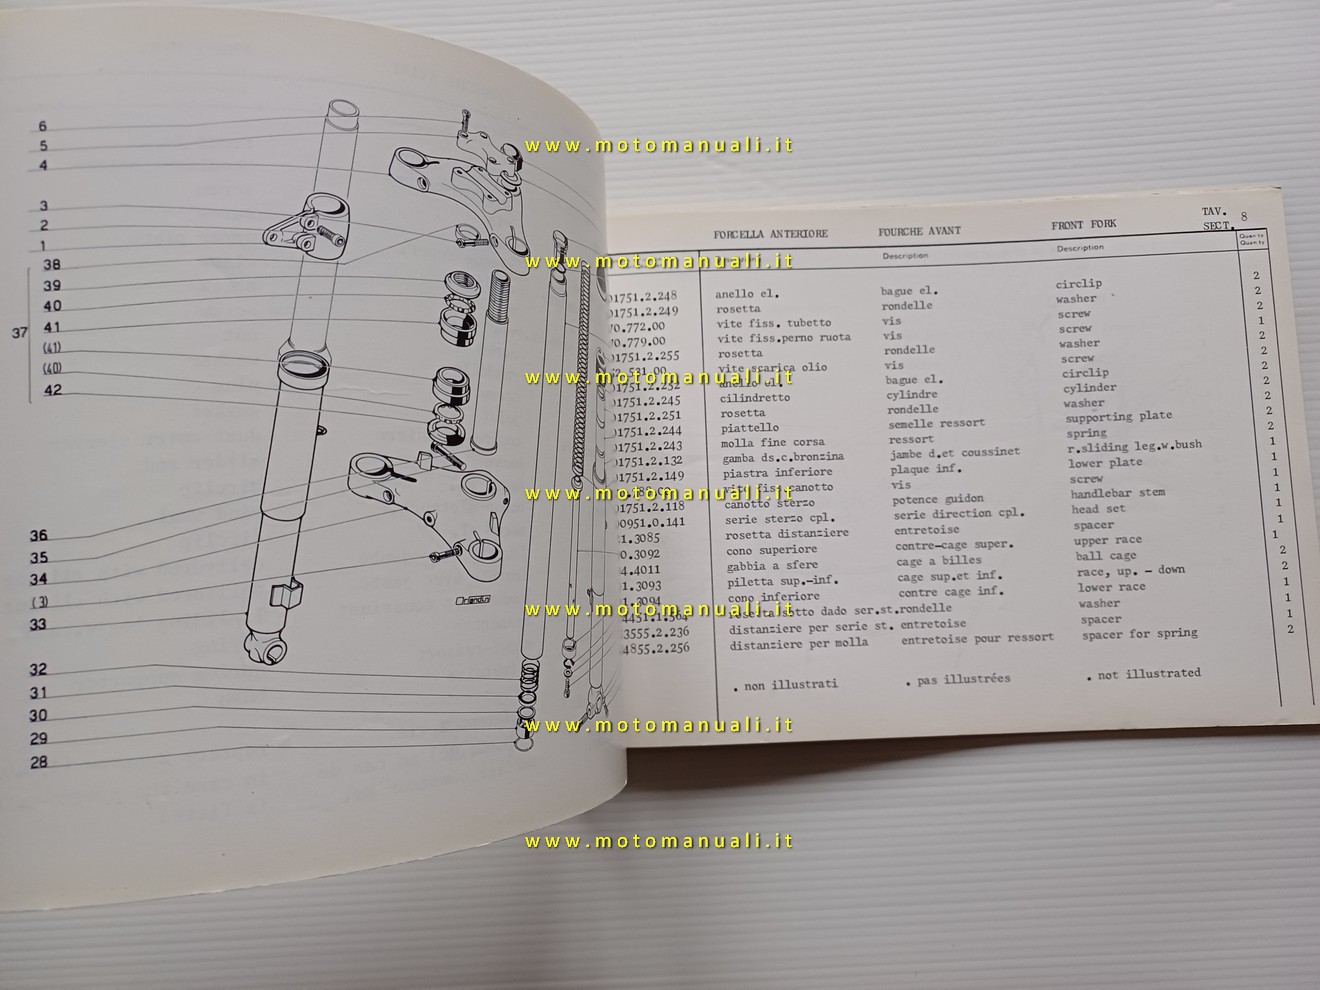 6
5
4
3
2
1
38
39
40
41
(41)
(40)
42
37
36
35
34
(3)
33
32
31
30
29
28
www.motomanuali.it
www.motomanuali.it
www.motomanuali.it
www.motomanuali.it
www.motomanuali.it
www.motomanuali.it
www.motomanuali.it
FORCELLA ANTERIORE FOURCHE AVANT FRONT FORK TAV. SECT. 8
Description Description
01751.2.248 anello el. bague el. circlip 2
01751.2.249 rosetta rondelle washer 2
70.772.00 vite fiss. tubetto vis screw 2
70.779.00 vite fiss.perno ruota vis screw 1
01751.2.255 rosetta rondelle washer 2
531.00 vite scarica olio vis screw 2
01751.2.252 anello el. bague el. circlip 2
01751.2.245 cilindretto cylindre cylinder 2
01751.2.251 rosetta rondelle washer 2
01751.2.244 piattello semelle ressort supporting plate 2
01751.2.243 molla fine corsa ressort spring 2
01751.2.132 gamba ds.c.bronzina jambe d.et coussinet r.sliding leg.w.bush 1
01751.2.149 piastra inferiore plaque inf. lower plate 1
vite fiss canotto vis screw 1
01751.2.118 canotto sterzo potence guidon handlebar stem 1
00951.0.141 serie sterzo cpl. serie direction cpl. head set 1
1.3085 rosetta distanziere entretoise spacer 1
0.3092 cono superiore contre-cage super. upper race 1
4.4011 gabbia a sfere cage a billes ball cage 2
1.3093 piletta sup.-inf. cage sup.et inf. race, up. - down 2
1.3094 cono inferiore contre cage inf. lower race 1
4451.1.564 rosetta sotto dado ser.st. rondelle washer 1
3555.2.236 distanziere per serie st. entretoise spacer 1
4855.2.256 distanziere per molla entretoise pour ressort spacer for spring 2
. non illustrati . pas illustrées . not illustrated